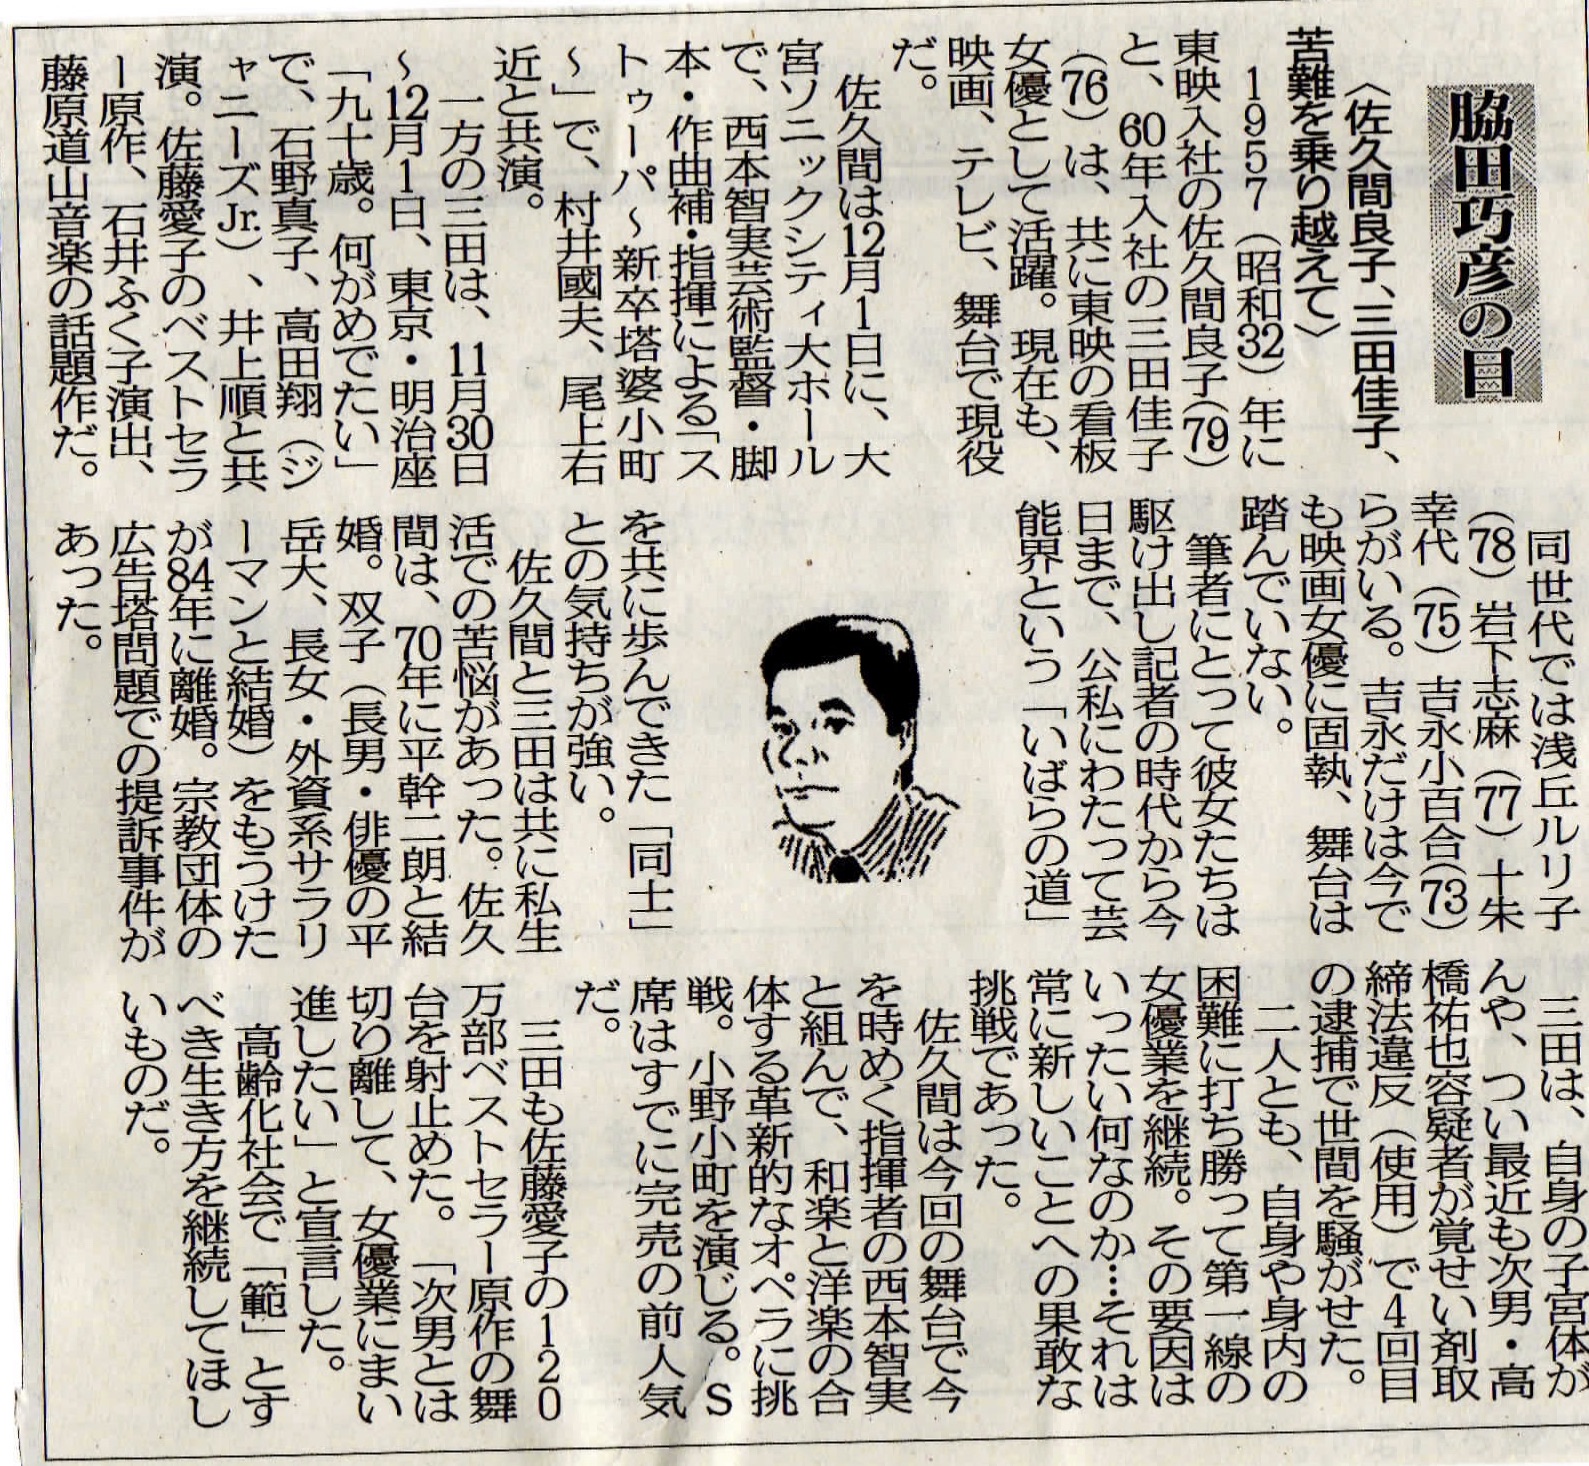 脇田巧彦の目
〈佐久間良子、三田佳子、
苦難を乗り越えて〉
1957（昭和32）年に
東映入社の佐久間良子（79）
と、60年入社の三田佳子
（76）は、共に東映の看板
女優として活躍。現在も、
映画、テレビ、舞台で現役
だ。
佐久間は12月1日に、大
宮ソニックシティ大ホール
で、西本智実芸術監督・脚
本・作曲補・指揮による「ス
トゥーパ～新卒塔婆小町
～」で、村井國夫、尾上右
近と共演。
一方の三田は、11月30日
～12月1日、東京・明治座
「九十歳。何がめでたい」
で、石野真子、高田翔（ジ
ャニーズJr.）、井上順と共
演。佐藤愛子のベストセラ
ー原作、石井ふく子演出、
藤原道山音楽の話題作だ。
同世代では浅丘ルリ子
（78）岩下志麻（77）十朱
幸代（75）吉永小百合（73）
らがいる。吉永だけは今で
も映画女優に固執、舞台は
踏んでいない。
筆者にとって彼女たちは
駆け出し記者の時代から今
日まで、公私にわたって芸
能界という「いばらの道」
を共に歩んできた「同士」
との気持ちが強い。
佐久間と三田は共に私生
活での苦悩があった。佐久
間は、70年に平幹二朗と結
婚。双子（長男・俳優の平
岳大、長女・外資系サラリ
ーマンと結婚）をもうけた
が84年に離婚。宗教団体の
広告塔問題での提訴事件が
あった。
三田は、自身の子宮体が
んや、つい最近も次男・高
橋祐也容疑者が覚せい剤取
締法違反（使用）で4回目
の逮捕で世間を騒がせた。
二人とも、自身や身内の
困難に打ち勝って第一線の
女優業を継続。その要因は
いったい何なのか…それは
常に新しいことへの果敢な
挑戦であった。
佐久間は今回の舞台で今
を時めく指揮者の西本智実
と組んで、和楽と洋楽の合
体する革新的なオペラに挑
戦。小野小町を演じる。S
席はすでに完売の前人気
だ。
三田も佐藤愛子の120
万部ベストセラー原作の舞
台を射止めた。「次男とは
切り離して、女優業にまい
進したい」と宣言した。
高齢化社会で「範」とす
べき生き方を継続してほし
いものだ。